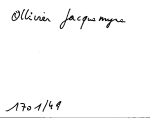 Ollivier Jacquemyns
1701/49